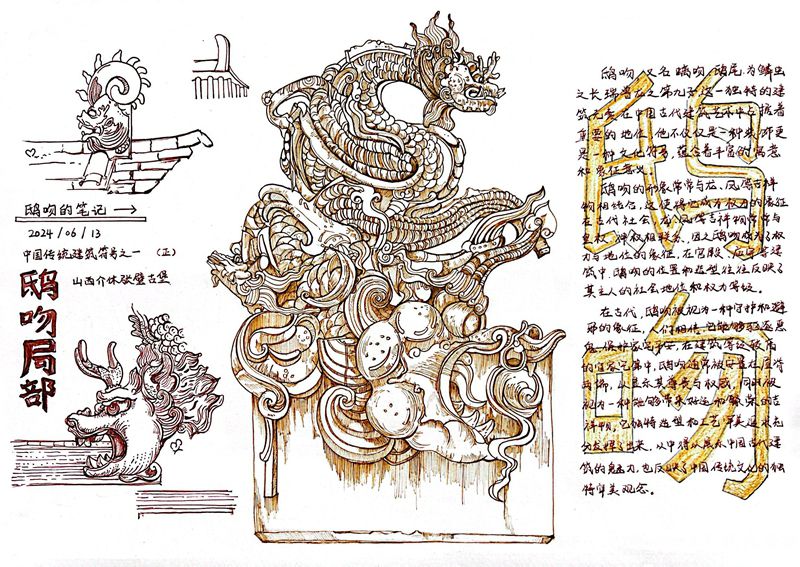 鸱吻的笔记 →
2024/06/13
中国传统建筑符号之一 (正)
山西介休张壁古堡
鸱吻局部
鸱吻
鸱吻,又名螭吻、鸱尾,为鳞虫
之长瑞兽龙之第九子,这一独特的建
筑元素,在中国古代建筑艺术中占据着
重要的地位,他不仅仅是一种装饰更
是一种文化符号,蕴含着丰富的寓意
和象征意义。
鸱吻的形象常常与龙、凤等吉祥
物相结合,这使得它成为权力的象征
在古代社会,龙、凤等吉祥物常常与
皇权、神权相联系,因此鸱吻成为了权
力与地位的象征,在宫殿、庙宇等建
筑中,鸱吻的位置和造型往往反映了
其主人的社会地位和权力等级。
在古代,鸱吻被视为一种守护和避
邪的象征,人们相信,它能够驱逐恶
灵,保护家宅平安,在建筑等级最高
的皇家宅第中,鸱吻通常被安置在屋脊
两侧,以显示其尊贵与权威,同时被
视为一种能够带来好运和繁荣的吉
祥物,它独特造型和工艺审美逗
分发挥了出来,从中得以展示中国古代建
筑的魅力,也反映了中国传统文化的独
特审美观念。